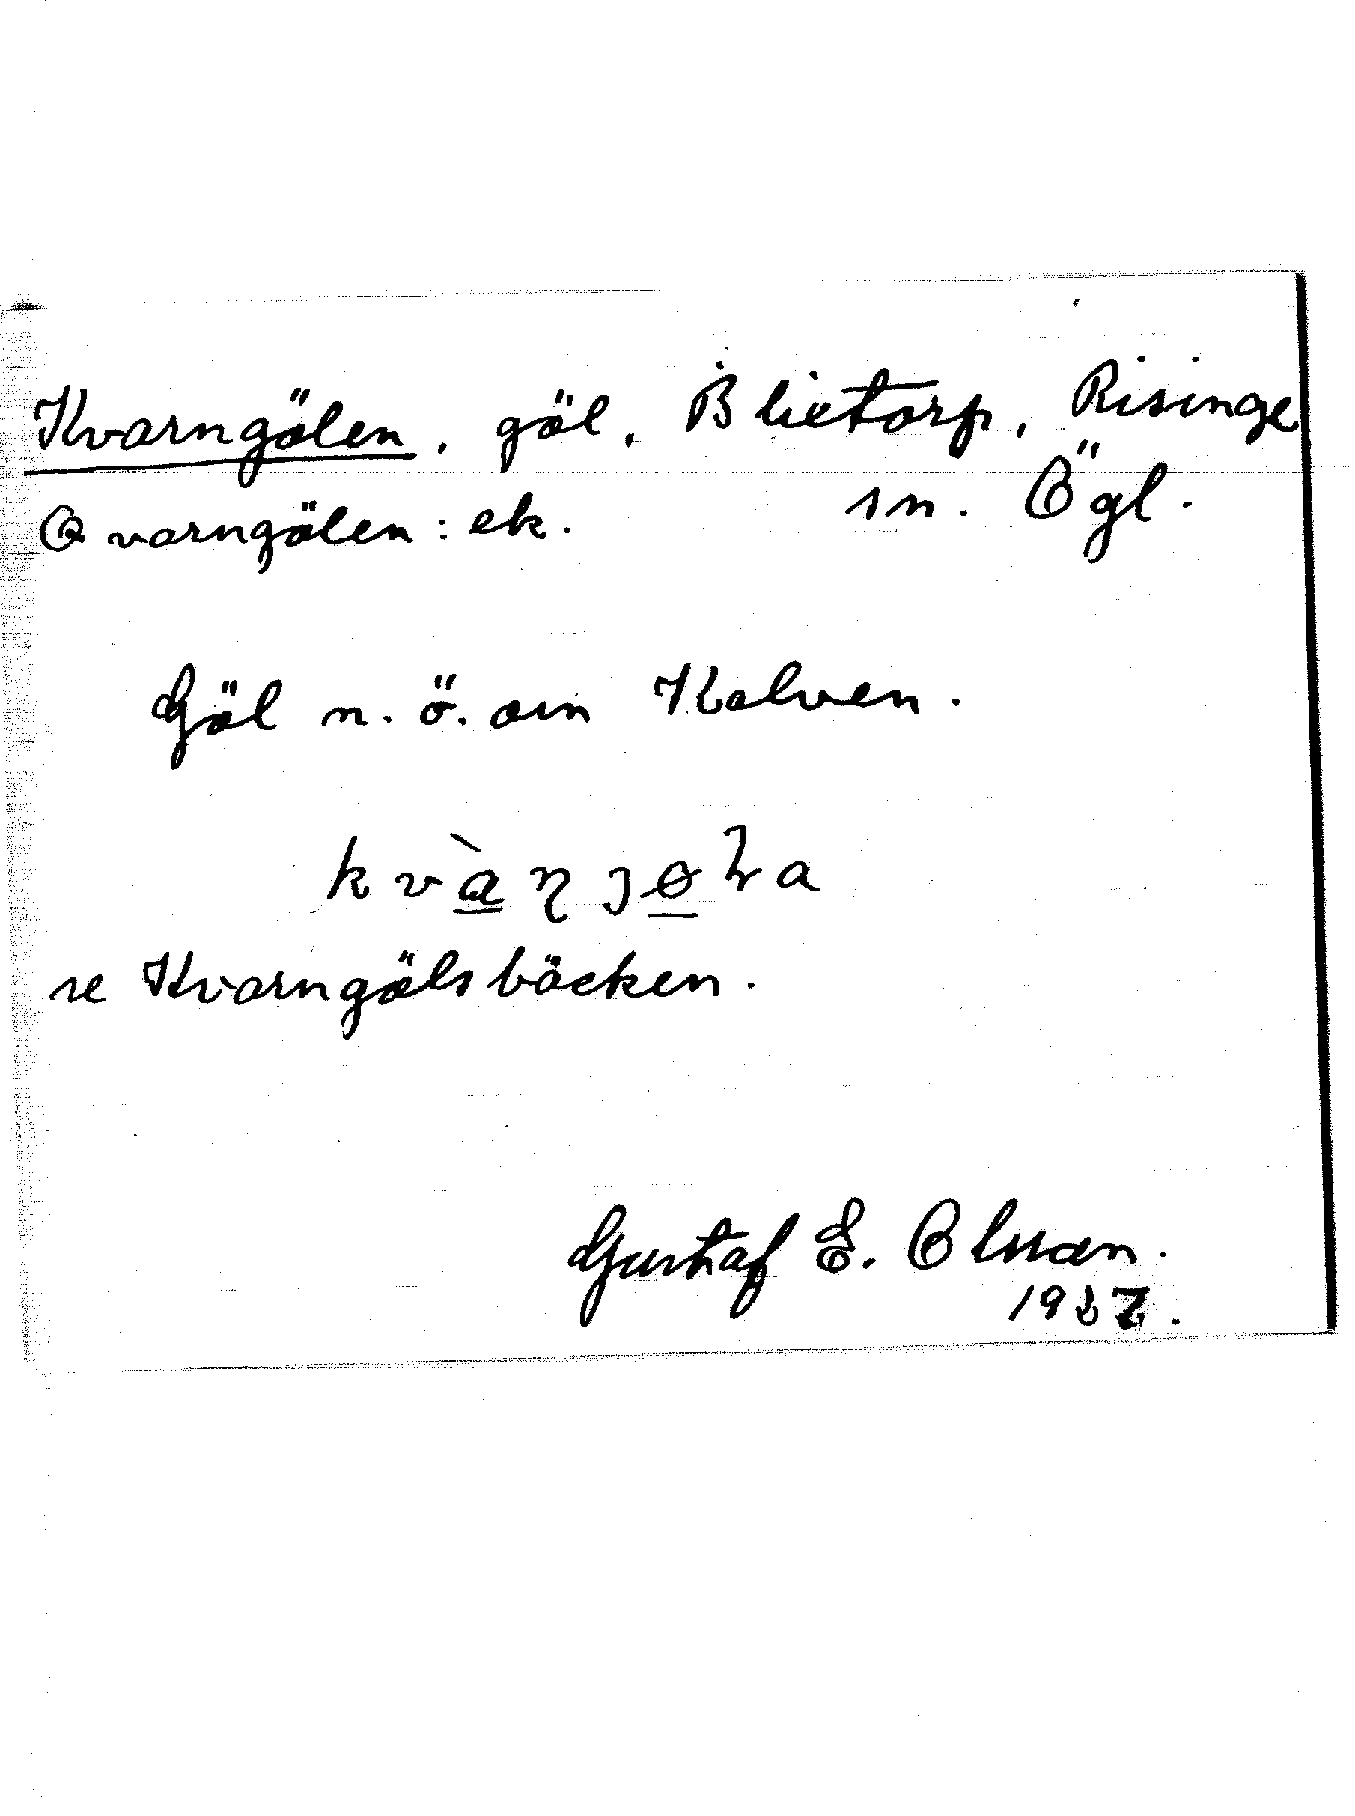 Kvarngölen, göl, Blietorp, Risinge
Qvarngölen: ek. sn. Ögl.
Göl n.ö. om Kalven.
se Kvarngölsbäcken.
Gustaf E. Olsson.